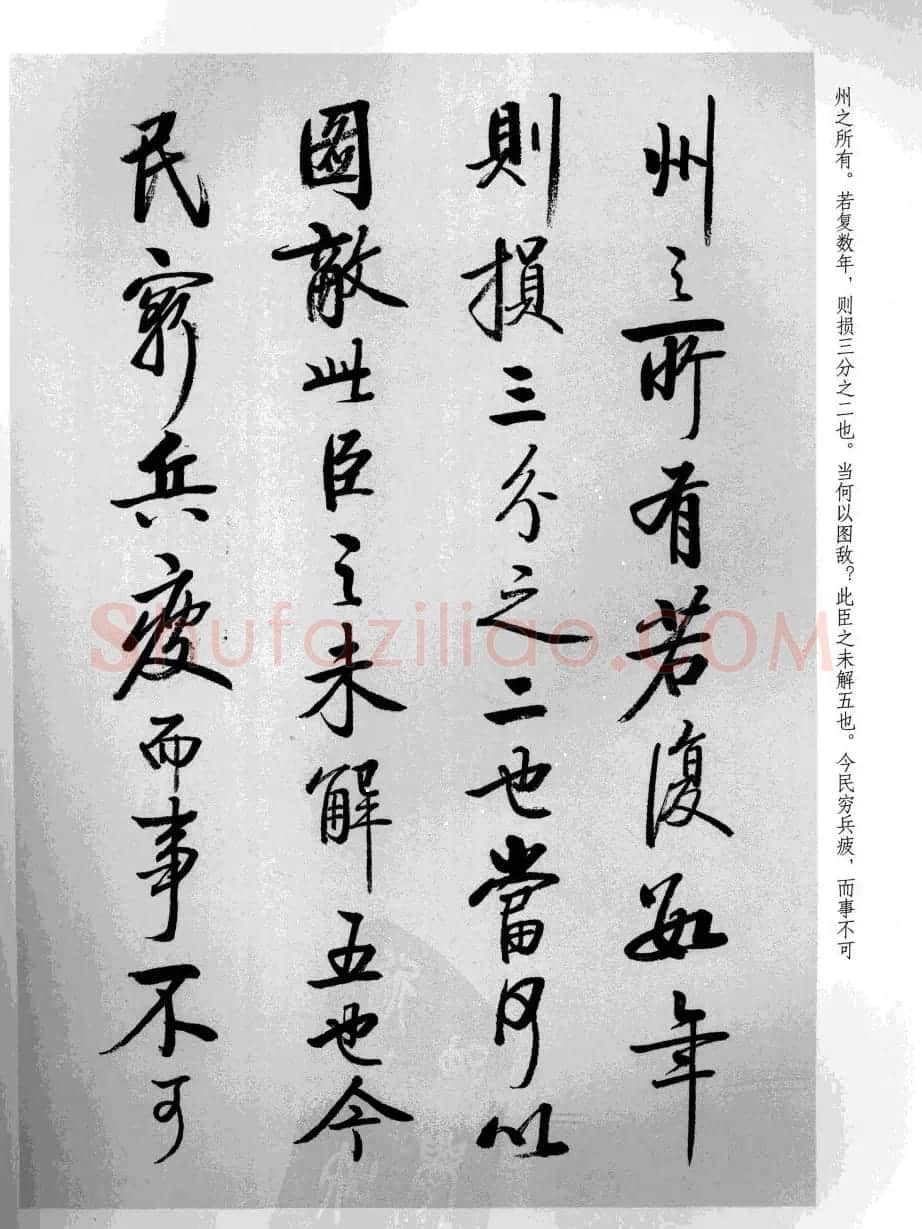 州之所有。若复数年，则损三分之二也。当何以图敌？此臣之未解五也。今民穷兵疲，而事不可
州之所有若復數年
則損三分之二也當何以
圖敵此臣之未解五也今
民窮兵疲而事不可
Shufaziliao.COM